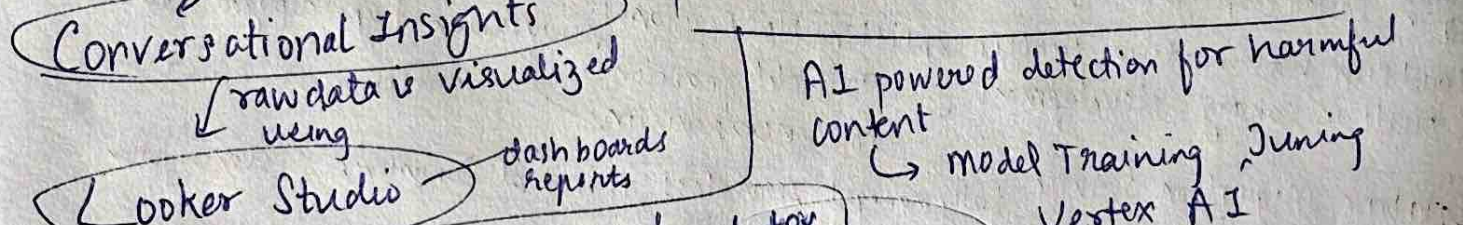 Conversational Insights
raw data is visualized
using
Looker Studio
dashboards
reports
AI powered detection for harmful
content
↳ Model Training, Tuning
Vertex AI